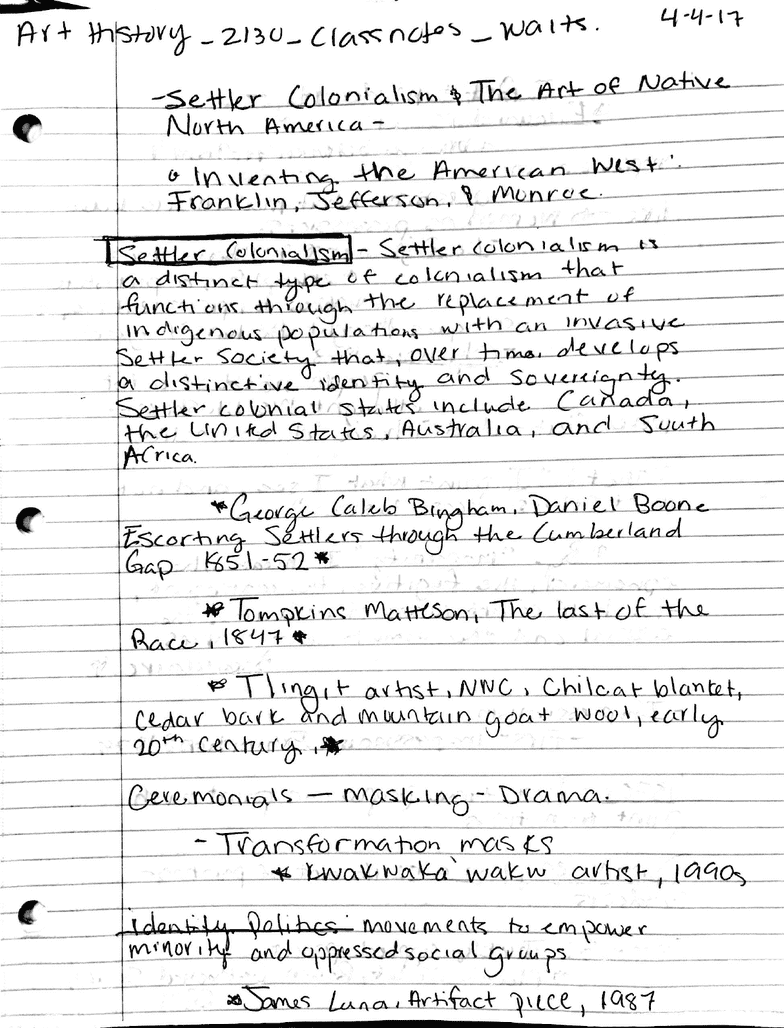 Art History - 2130 - Classnotes - Waits. 4-4-17
- Settler Colonialism & The Art of Native
North America -
Inventing the American West:
Franklin, Jefferson, & Monroe.
Settler Colonialism - Settler colonialism is
a distinct type of colonialism that
functions through the replacement of
indigenous populations with an invasive
settler society that, over time, develops
a distinctive identity and sovereignty.
Settler colonial states include Canada,
the United States, Australia, and South
Africa.
*George Caleb Bingham, Daniel Boone
Escorting Settlers through the Cumberland
Gap 1851-52*
* Tompkins Matteson, The last of the
Race, 1847*
* Tlingit artist, NNC, Chilcat blanket,
cedar bark and mountain goat wool, early
20th century.*
Ceremonials - masking - Drama.
- Transformation masks
* Kwakwaka`wakw artist, 1990s
identity politics: movements to empower
minority and oppressed social groups
*James Luna, Artifact piece, 1987